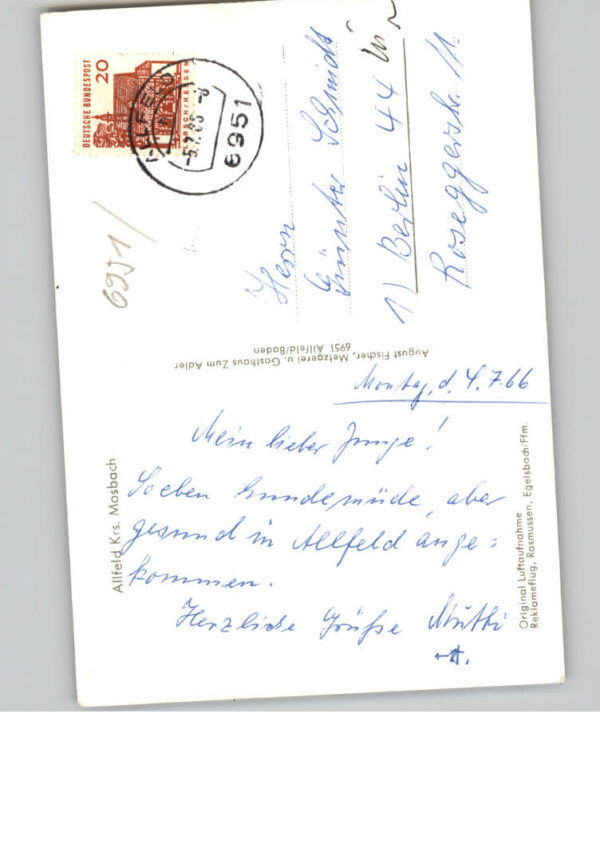 DEUTSCHE BUNDESPOST
20
LORSCH/HESSEN
ALLFELD
-5.7.66-8
6951
6951/
Herrn
Günter Schmidt
1) Berlin 44
Roseggerstr. 11
August Fischer, Metzgerei u. Gasthaus Zum Adler
6951 Allfeld/Baden
Montag, d. 4.7.66
Mein lieber Junge!
Soeben hundemüde, aber
gesund in Allfeld ange=
kommen.
Herzliche Grüße Mutti
Allfeld Krs. Mosbach
Original Luftaufnahme
Reklameflug, Rasmussen, Egelsbach/Ffm.